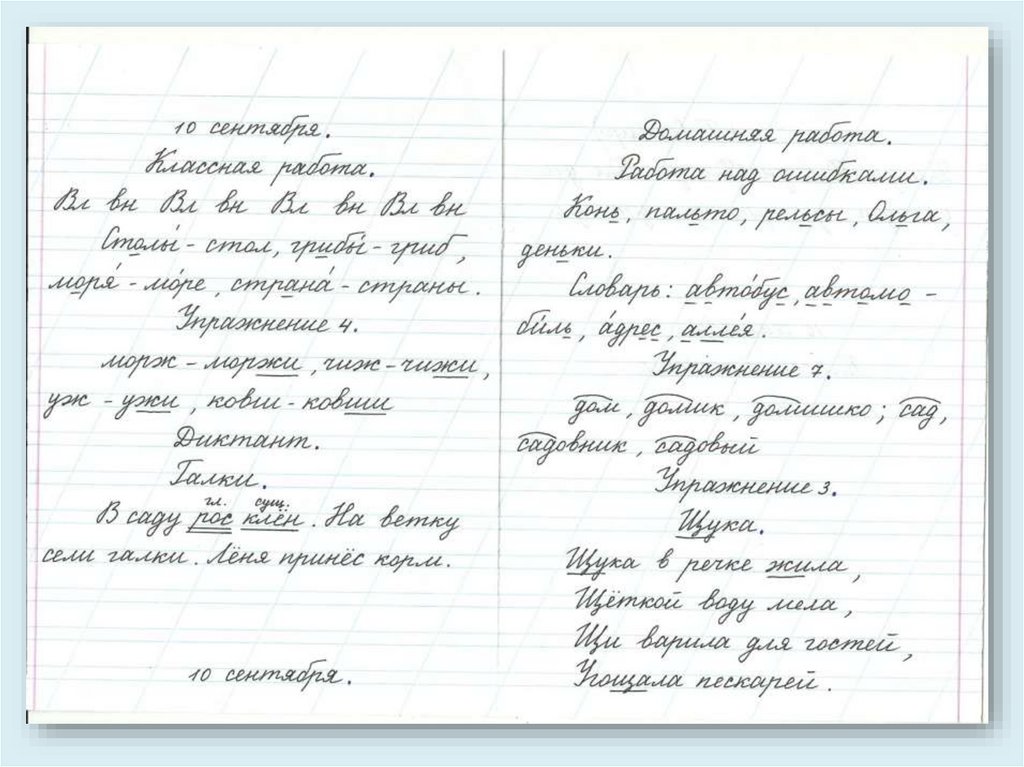 10 сентября.
Классная работа.
Вл вн Вл вн Вл вн Вл вн
Столы́ - стол, грибы́ - гриб,
моря́ - мо́ре, страна́ - страны.
Упражнение 4.
морж - моржи, чиж - чижи,
уж - ужи, ковш - ковши
Диктант.
Галки.
гл. сущ.
В саду рос клён. На ветку
сели галки. Лёня принёс корм.
10 сентября.
Домашняя работа.
Работа над ошибками.
Конь, пальто, рельсы, Ольга,
деньки.
Словарь: авто́бус, автомо-
би́ль, а́дрес, алле́я.
Упражнение 7.
дом, домик, домишко; сад,
садовник, садовый
Упражнение 3.
Щука.
Щука в речке жила,
Щёткой воду мела,
Щи варила для гостей,
Угощала пескарей.